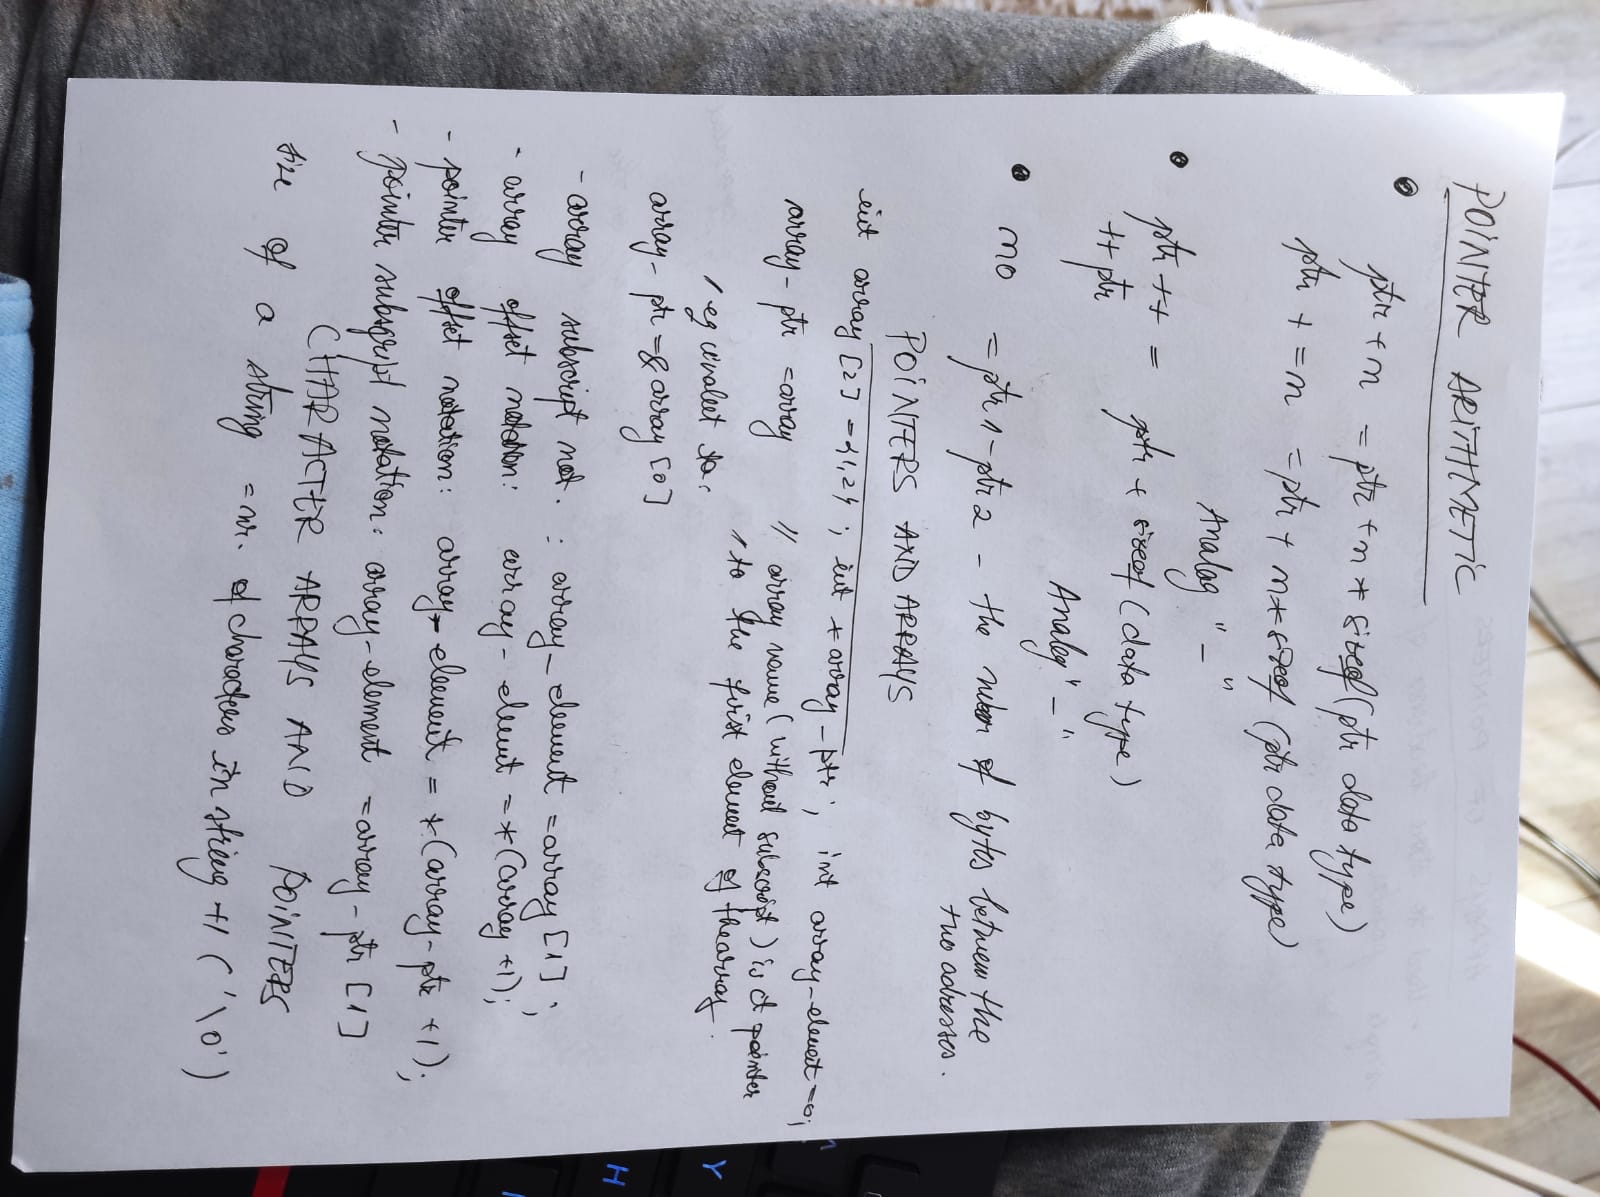 POINTER ARITHMETIC
ptr + n = ptr + n * sizeof (ptr data type)
ptr + = n = ptr + n * sizeof (ptr data type)
Analog " - "
ptr ++ = ptr + sizeof (data type)
++ ptr
Analog " - "
no = ptr 1 - ptr 2 - the of bytes between the
two adresses.
POINTERS AND ARRAYS
int array [2] = {1,2} ; int * array_ptr ; int array_element = 0;
array_ptr = array // array name ( without subscript ) is a pointer
// to the first element of the array.
/ equivalent to:
array_ptr = & array [0]
- array subscript not. : array_element = array [1] ;
- array offset notation: array_element = *(array +1);
- pointer offset notation: array_element = *(array_ptr +1);
- pointer subscript notation: array_element = array_ptr [1]
CHARACTER ARRAYS AND POINTERS
size of a string = nr. of characters in string +1 ('\0')